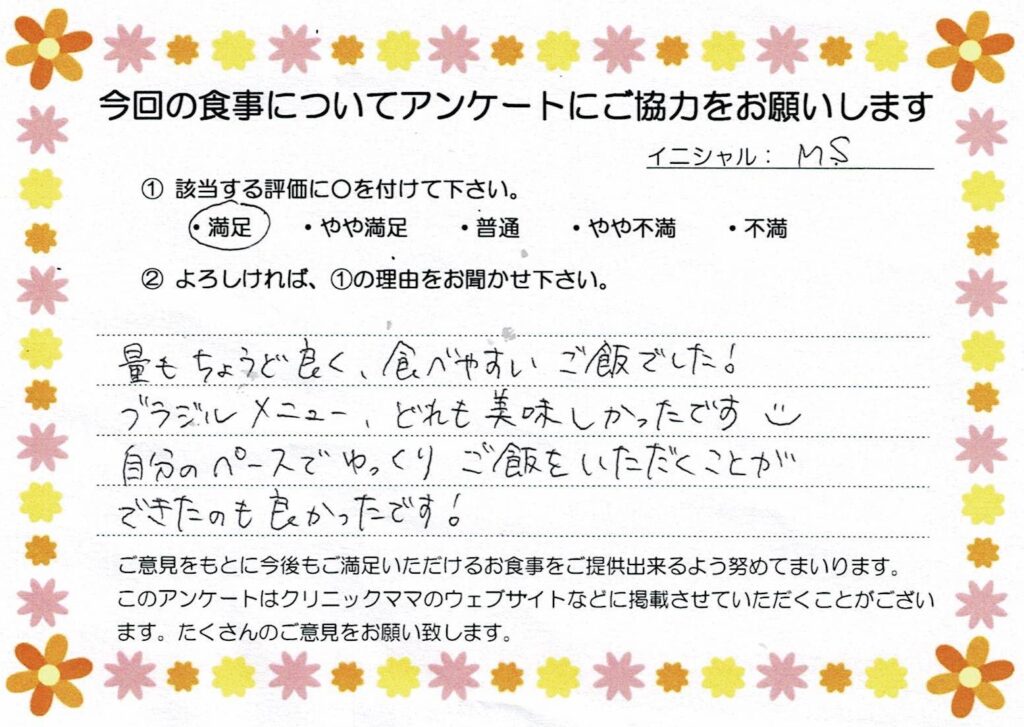 今回の食事についてアンケートにご協力をお願いします
イニシャル： MS
① 該当する評価に○を付けて下さい。
・満足 ・やや満足 ・普通 ・やや不満 ・不満
② よろしければ、①の理由をお聞かせ下さい。
量もちょうど良く、食べやすいご飯でした！
ブラジルメニュー、どれも美味しかったです
自分のペースでゆっくりご飯をいただくことが
できたのも良かったです！
ご意見をもとに今後もご満足いただけるお食事をご提供出来るよう努めてまいります。
このアンケートはクリニックママのウェブサイトなどに掲載させていただくことがござい
ます。たくさんのご意見をお願い致します。